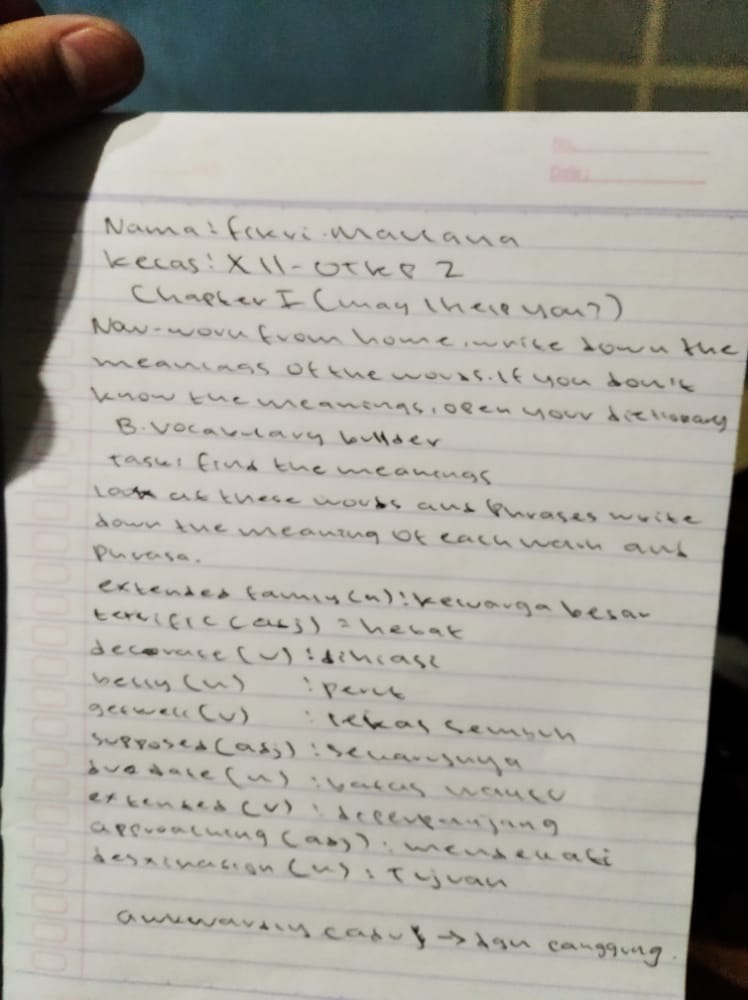 No.
Date:
Nama: Fikri Maulana
Kelas: XII-OTKP 2
Chapter I (may I help you?)
Now-work from home, write down the
meanings of the words. If you don't
know the meanings, open your dictionary
B. Vocabulary builder
Task: Find the meanings
look at these words and phrases write
down the meaning of each word and
phrasa.
extended family (n): keluarga besar
terrific (adj) = hebat
decorate (v): dihiasi
belly (n) : perut
getwell (v) : lekas sembuh
supposed (adj): seharusnya
due date (n): batas waktu
extended (v): diperpanjang
approaching (adj): mendekati
destination (n): Tujuan
awkwardly (adv) → dgn canggung.